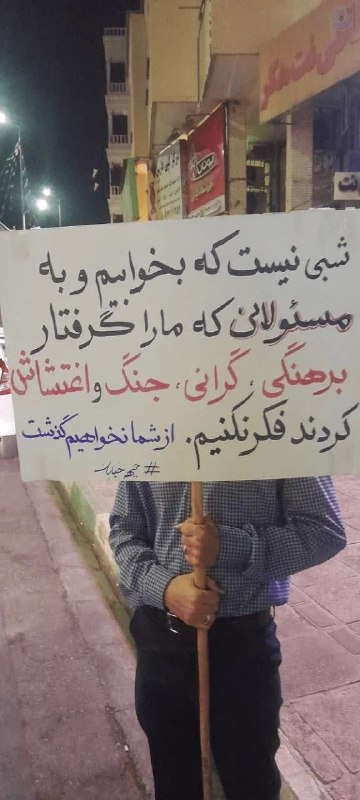 شبی نیست که بخوابیم و به
مسئولانی که ما را گرفتار
برهنگی، گرانی، جنگ و اغتشاش
کردند فکر نکنیم. از شما نخواهیم گذشت
#